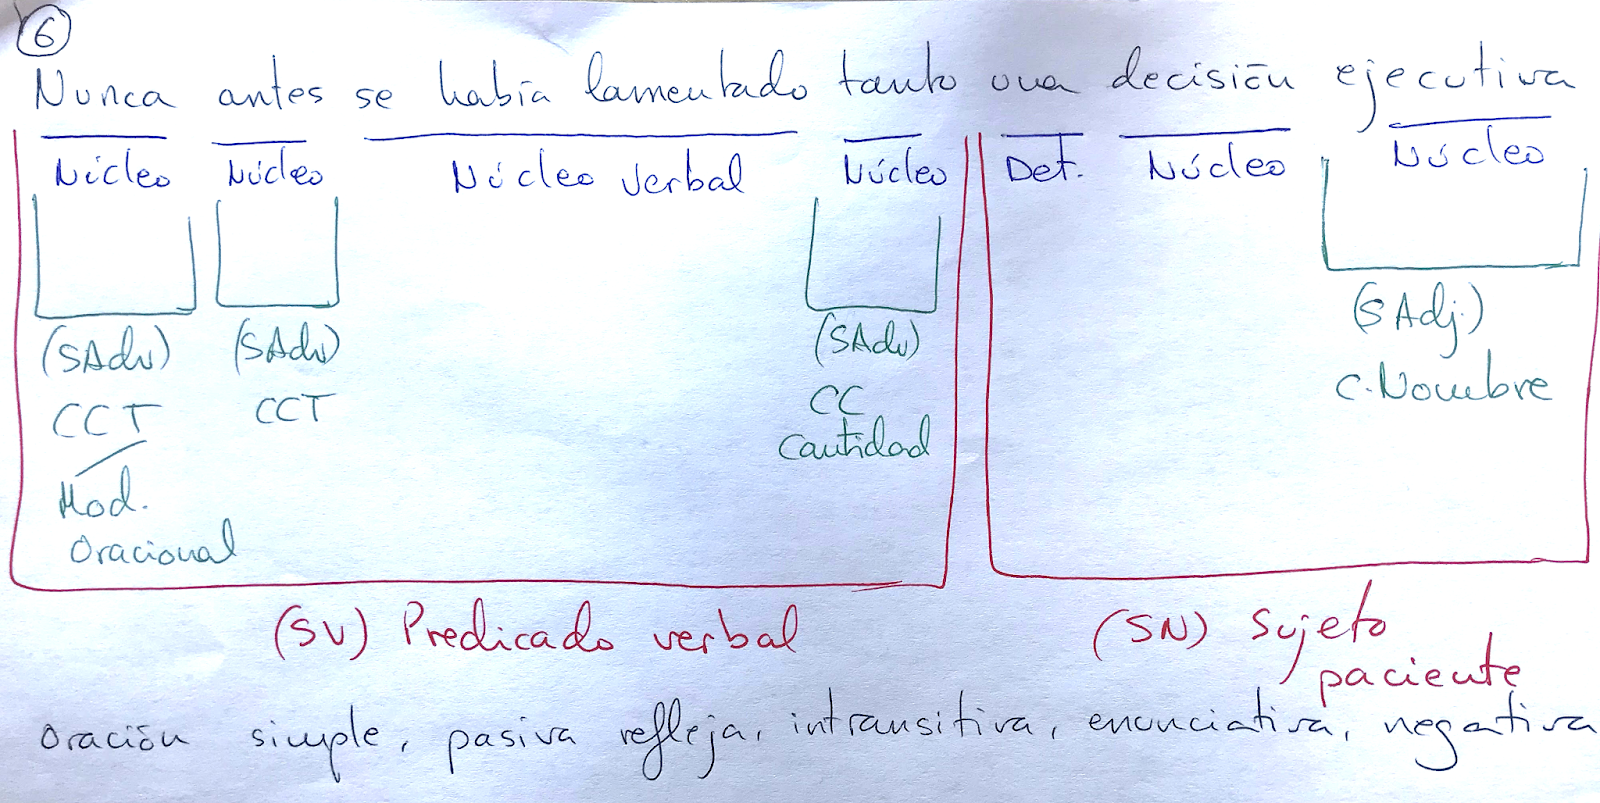 6
Nunca antes se había lamentado tanto una decisión ejecutiva
Núcleo Núcleo Núcleo Verbal Núcleo Det. Núcleo Núcleo
(SAdv) (SAdv) (SAdv) (SAdj.)
CCT CCT CC C. Nombre
Cantidad
Mod.
Oracional
(SV) Predicado verbal (SN) Sujeto
paciente
Oración simple, pasiva refleja, intransitiva, enunciativa, negativa